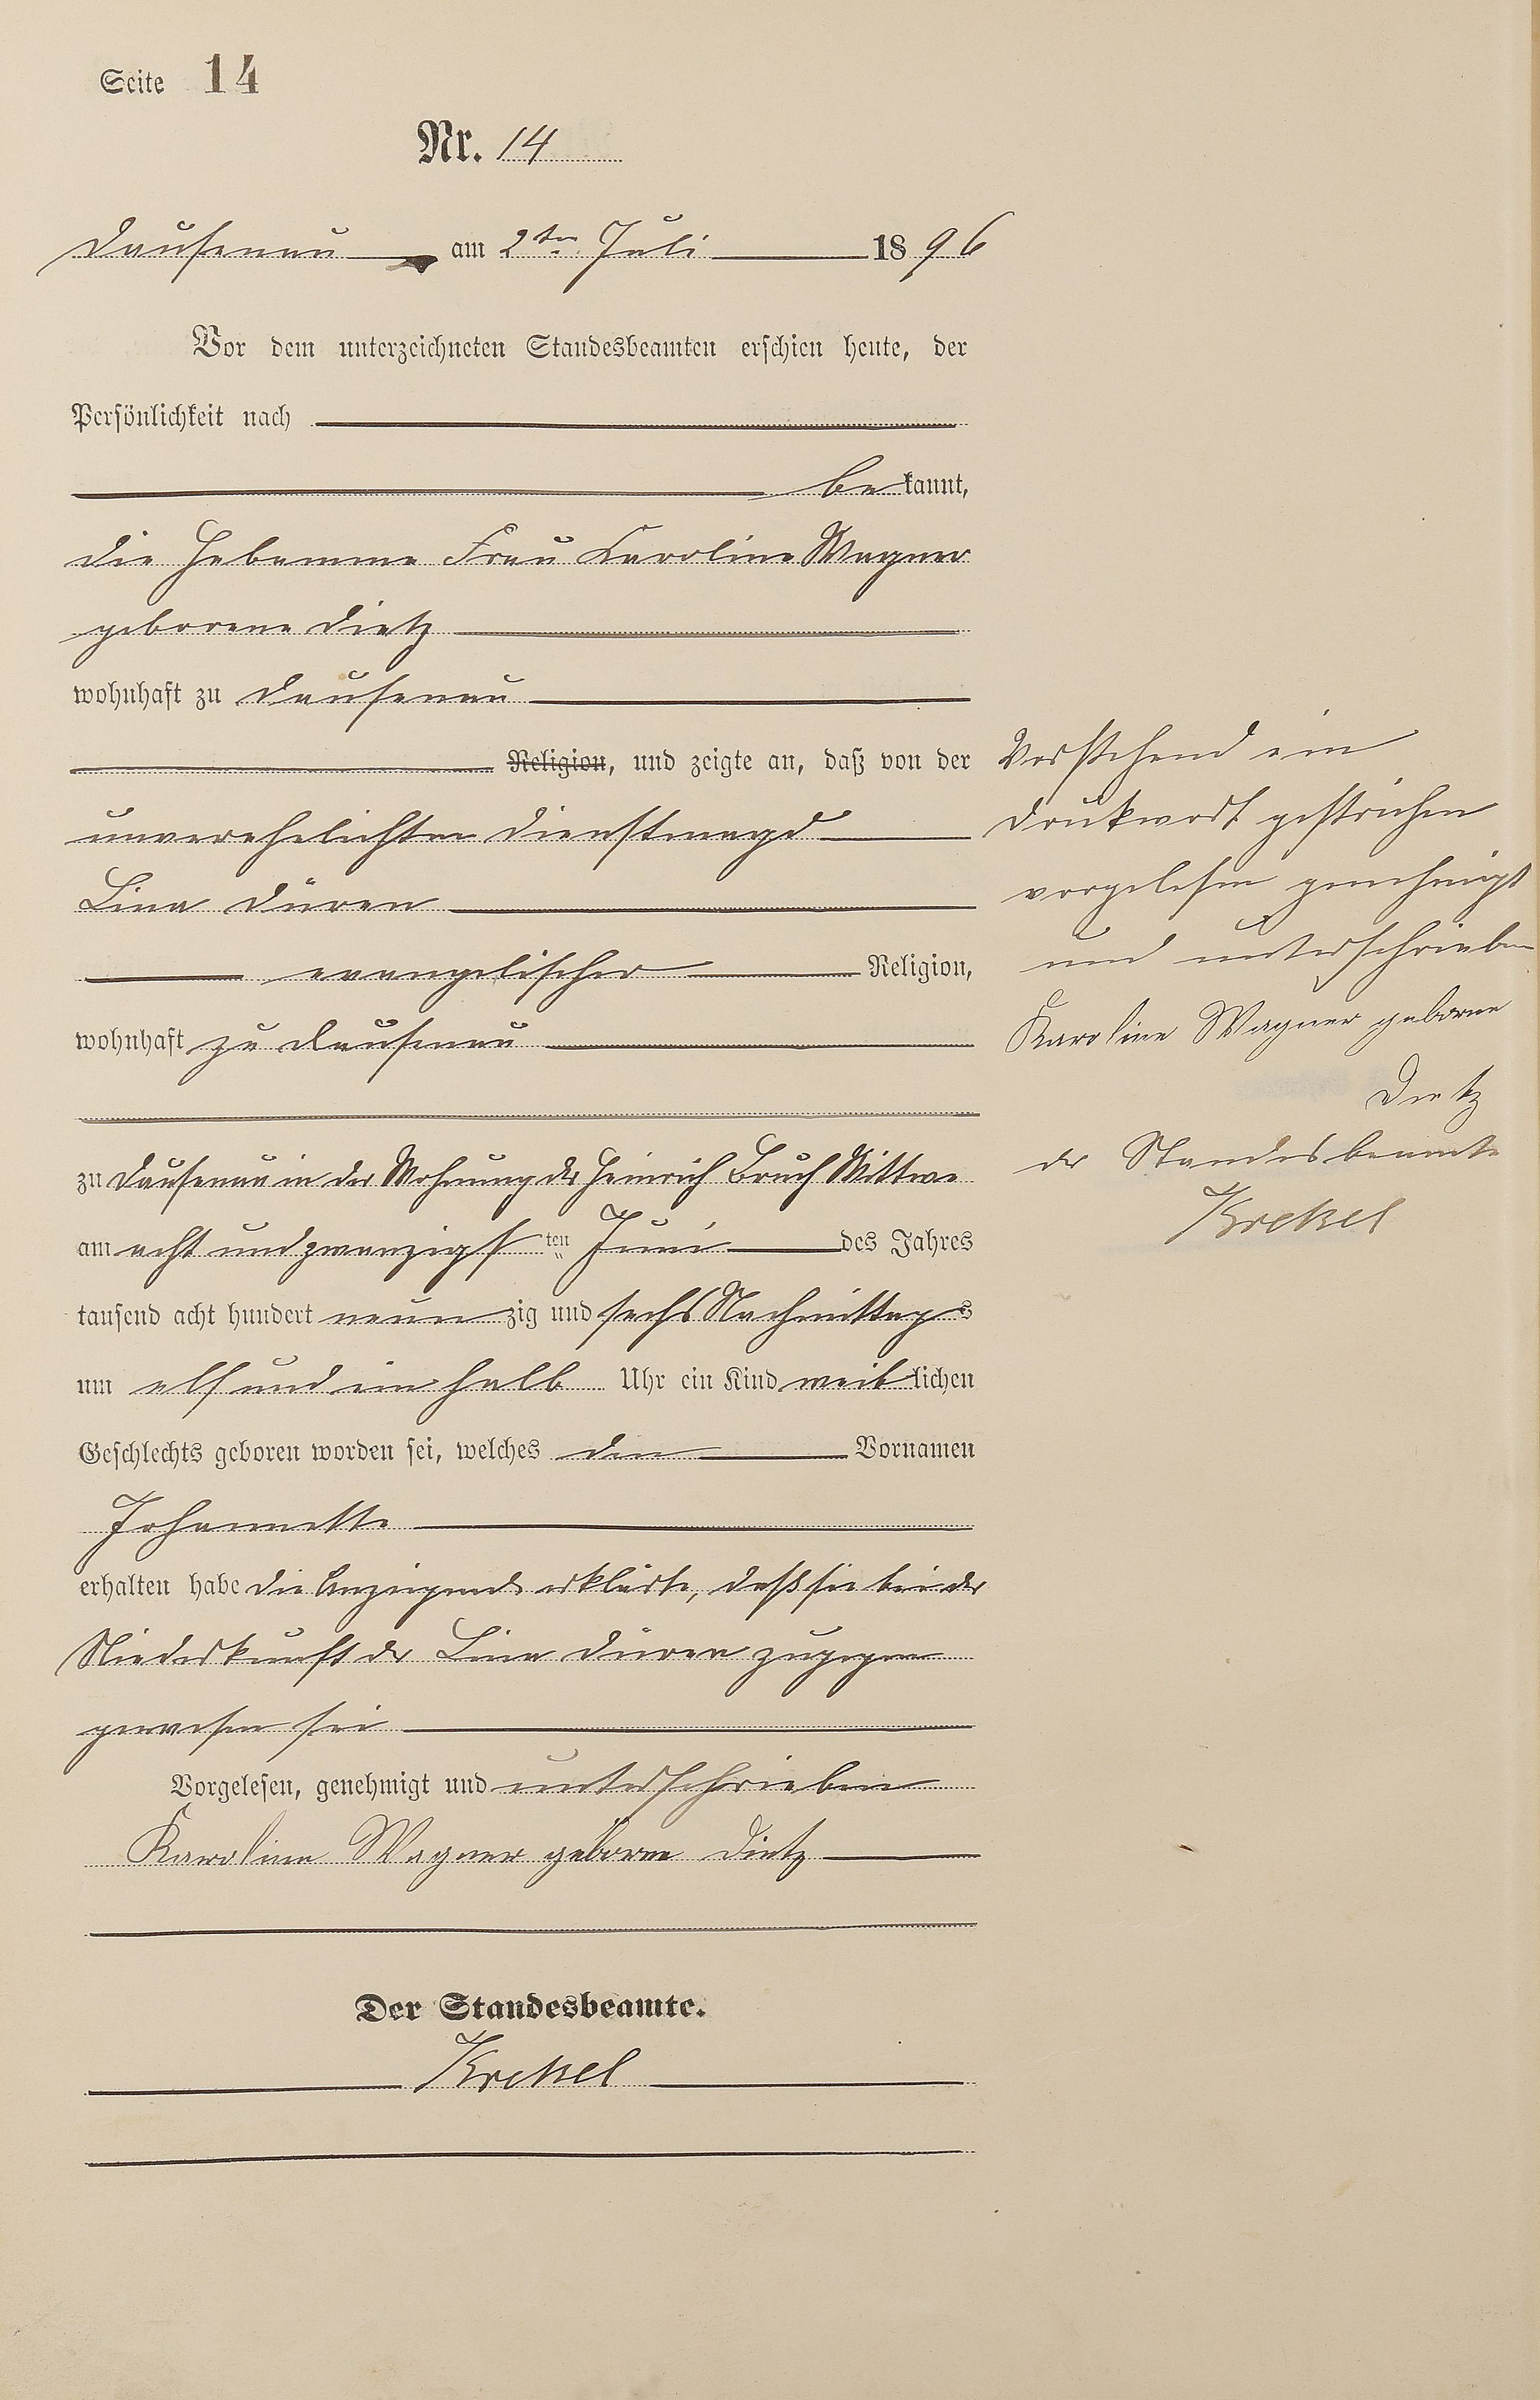 Seite 14
Nr. 14
Dausenau am 2ten Juli 1896
Vor dem unterzeichneten Standesbeamten erschien heute, der
Persönlichkeit nach
bekannt,
die Hebamme Frau Karoline Wagner
geborene Dietz
wohnhaft zu Dausenau
Religion, und zeigte an, daß von der
unverehelichten Dienstmagd
Lina Düren
evangelischer Religion,
wohnhaft zu Dausenau
zu Dausenau in der Wohnung der Heinrich Bruch Wittwe
am acht und zwanzigsten Juni des Jahres
tausend acht hundert neunzig und sechs Nachmittags
um elf und ein halb Uhr ein Kind weiblichen
Geschlechts geboren worden sei, welches den Vornamen
Johannette
erhalten habe die Anzeigende erklärte, daß sie bei der
Niederkunft der Lina Düren zugegen
gewesen sei
Vorgelesen, genehmigt und unterschrieben
Karoline Wagner geborne Dietz
Der Standesbeamte.
Krekel
Vorstehend ein
Druckwort gestrichen
vorgelesen genehmigt
und unterschrieben
Karoline Wagner geborne
Dietz
der Standesbeamte
Krekel